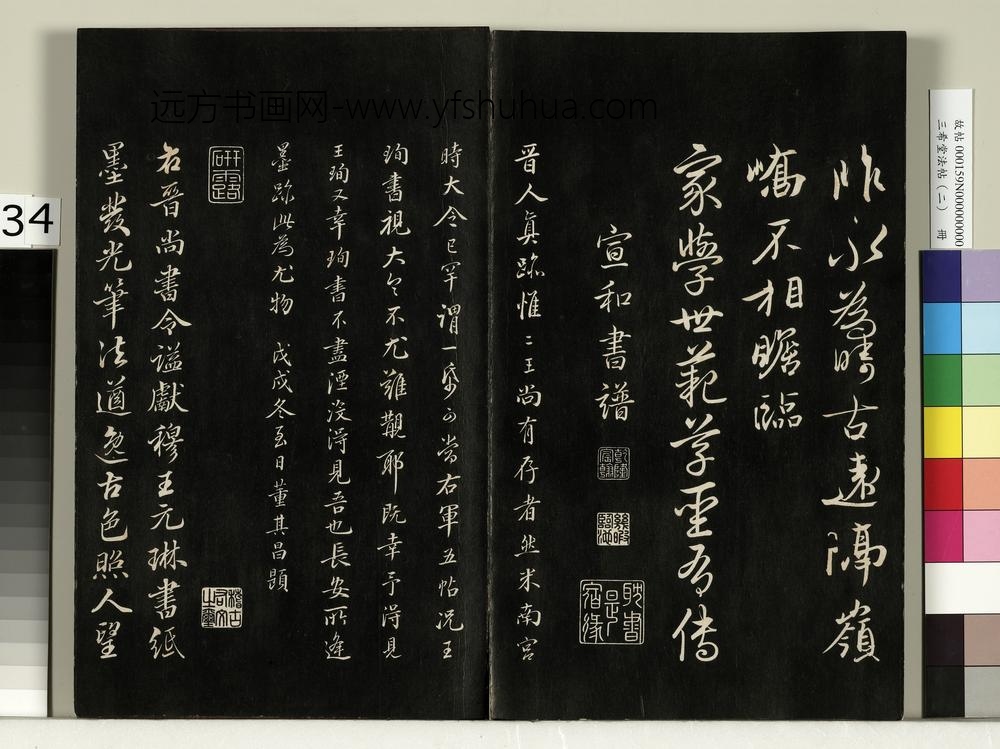 昨永為疇古遠隔嶺
嶠不相瞻臨
家學世範草聖有傳
宣和書譜
乾隆宸翰
幾暇臨池
耽書是宿緣
晉人真跡惟二王尚有存者然米南宮
時大令已罕謂一紙可當右軍五帖況王
珣書視大令不尤難覯耶既幸予得見
王珣又幸珣書不盡湮沒得見吾也長安所逢
墨跡此為尤物 戊戌冬至日董其昌題
研露
稽古右文之璽
右晉尚書令謚獻穆王元琳書紙
墨發光筆法遒逸古色照人望
远方书画网-www.yfshuhua.com
故帖 000159N000000000
三希堂法帖(二) 冊
34